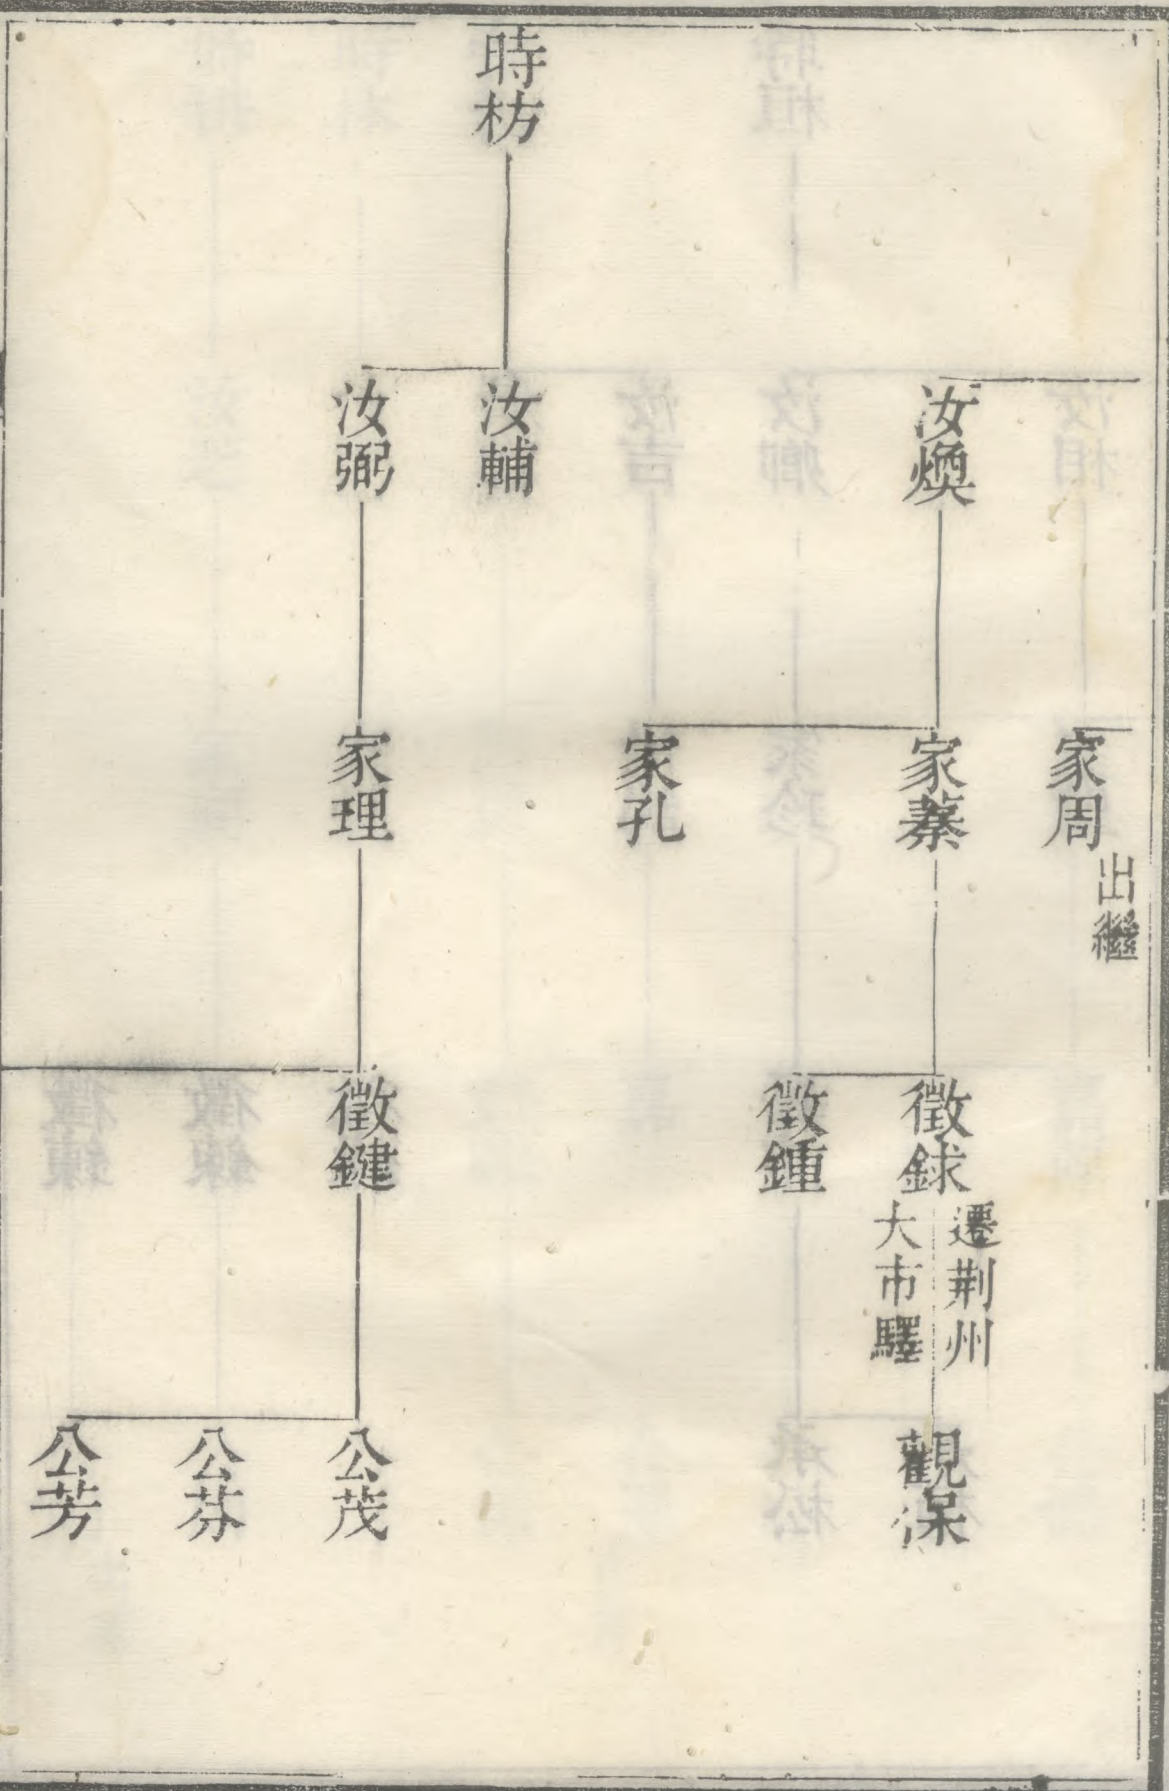 時枋
汝煥
汝輔
汝弼
家周
出繼
家蓁
家孔
家理
徵銶
遷荆州
大市驛
徵鍾
徵鍵
觀保
公茂
公芬
公芳